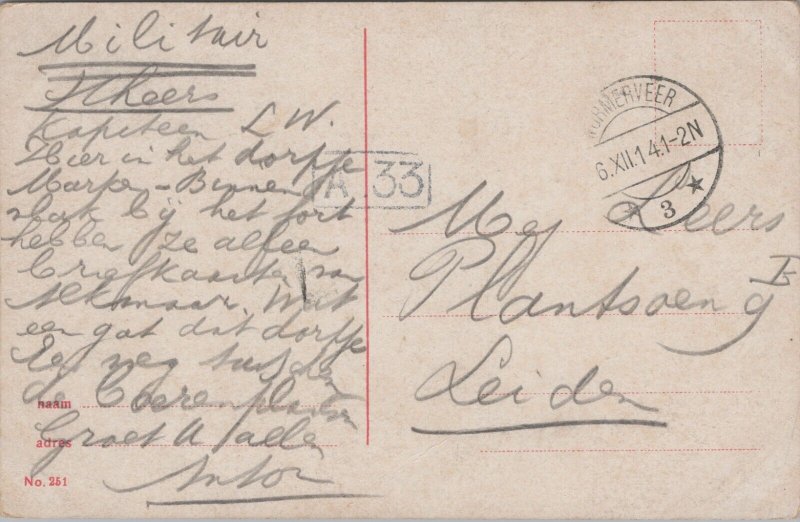 Militair
Kapitein L W.
Hier in het dorpje
Marken-Binnen
vlak bij het fort
hebben ze alleen
briefkaarten van
Alkmaar. Wat
een gat dat dorpje
nog tusschen
de Boerenplaatsen
Groet U allen
Anton
naam
adres
No. 251
A 33
WORMERVEER
6.XII.14.1-2N
3
Mej Heers
Plantsoen 9
Leiden